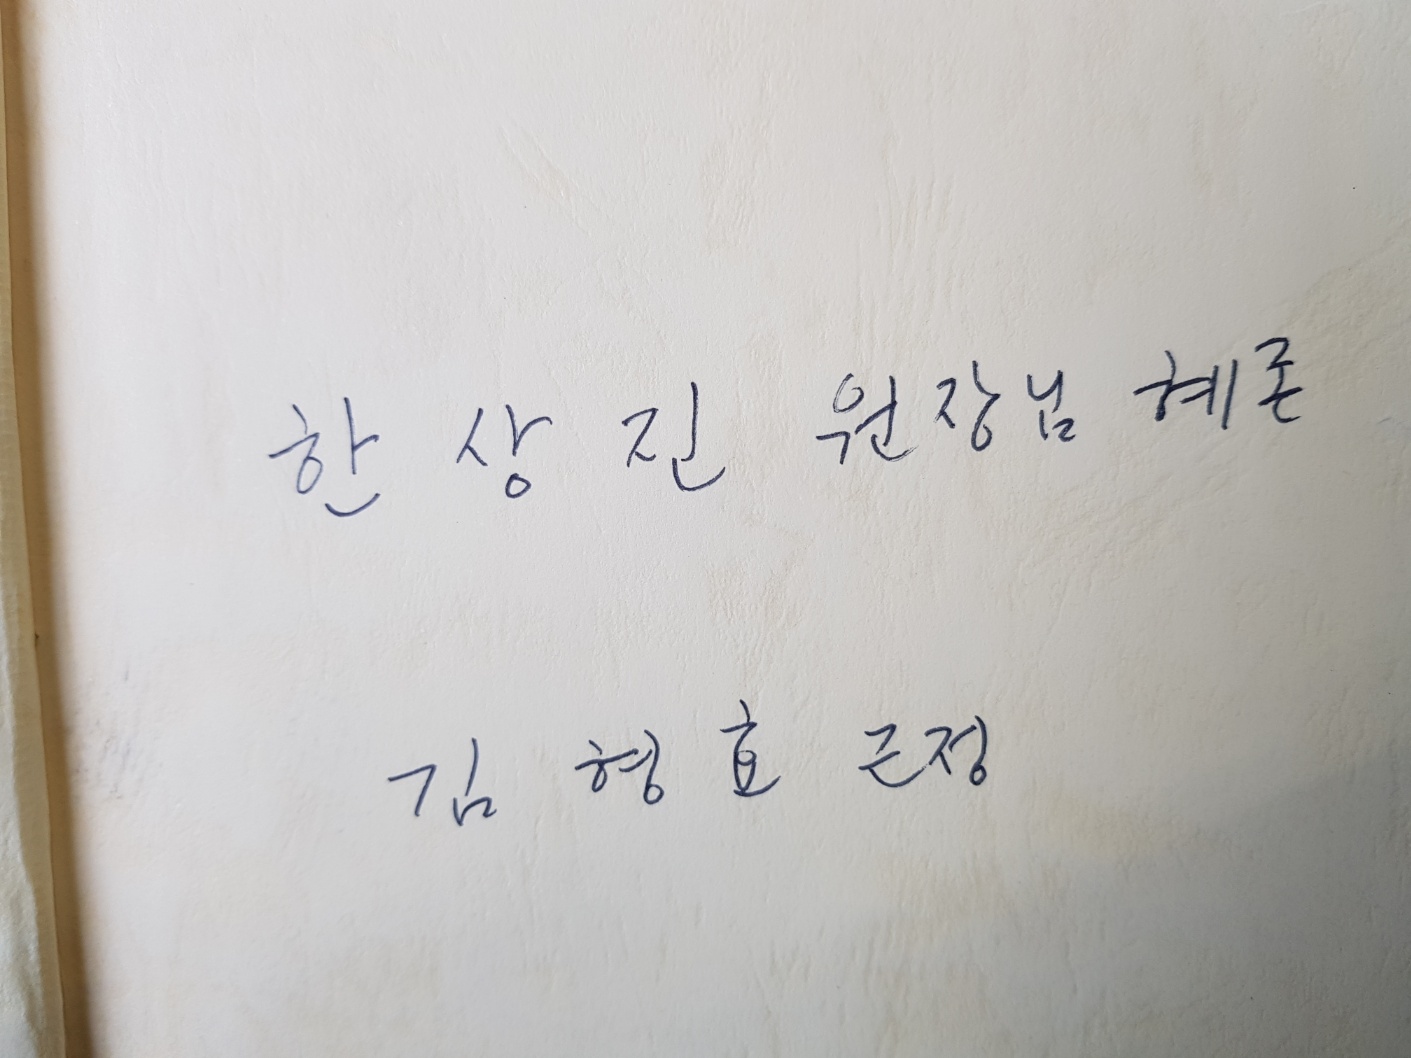 한 상 진 원장님 혜존
김 형 효 근정